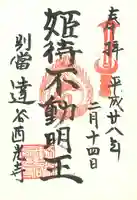 奉拝
平成廿八年
二月十四日
姫待不動明王
別當
達谷西光寺